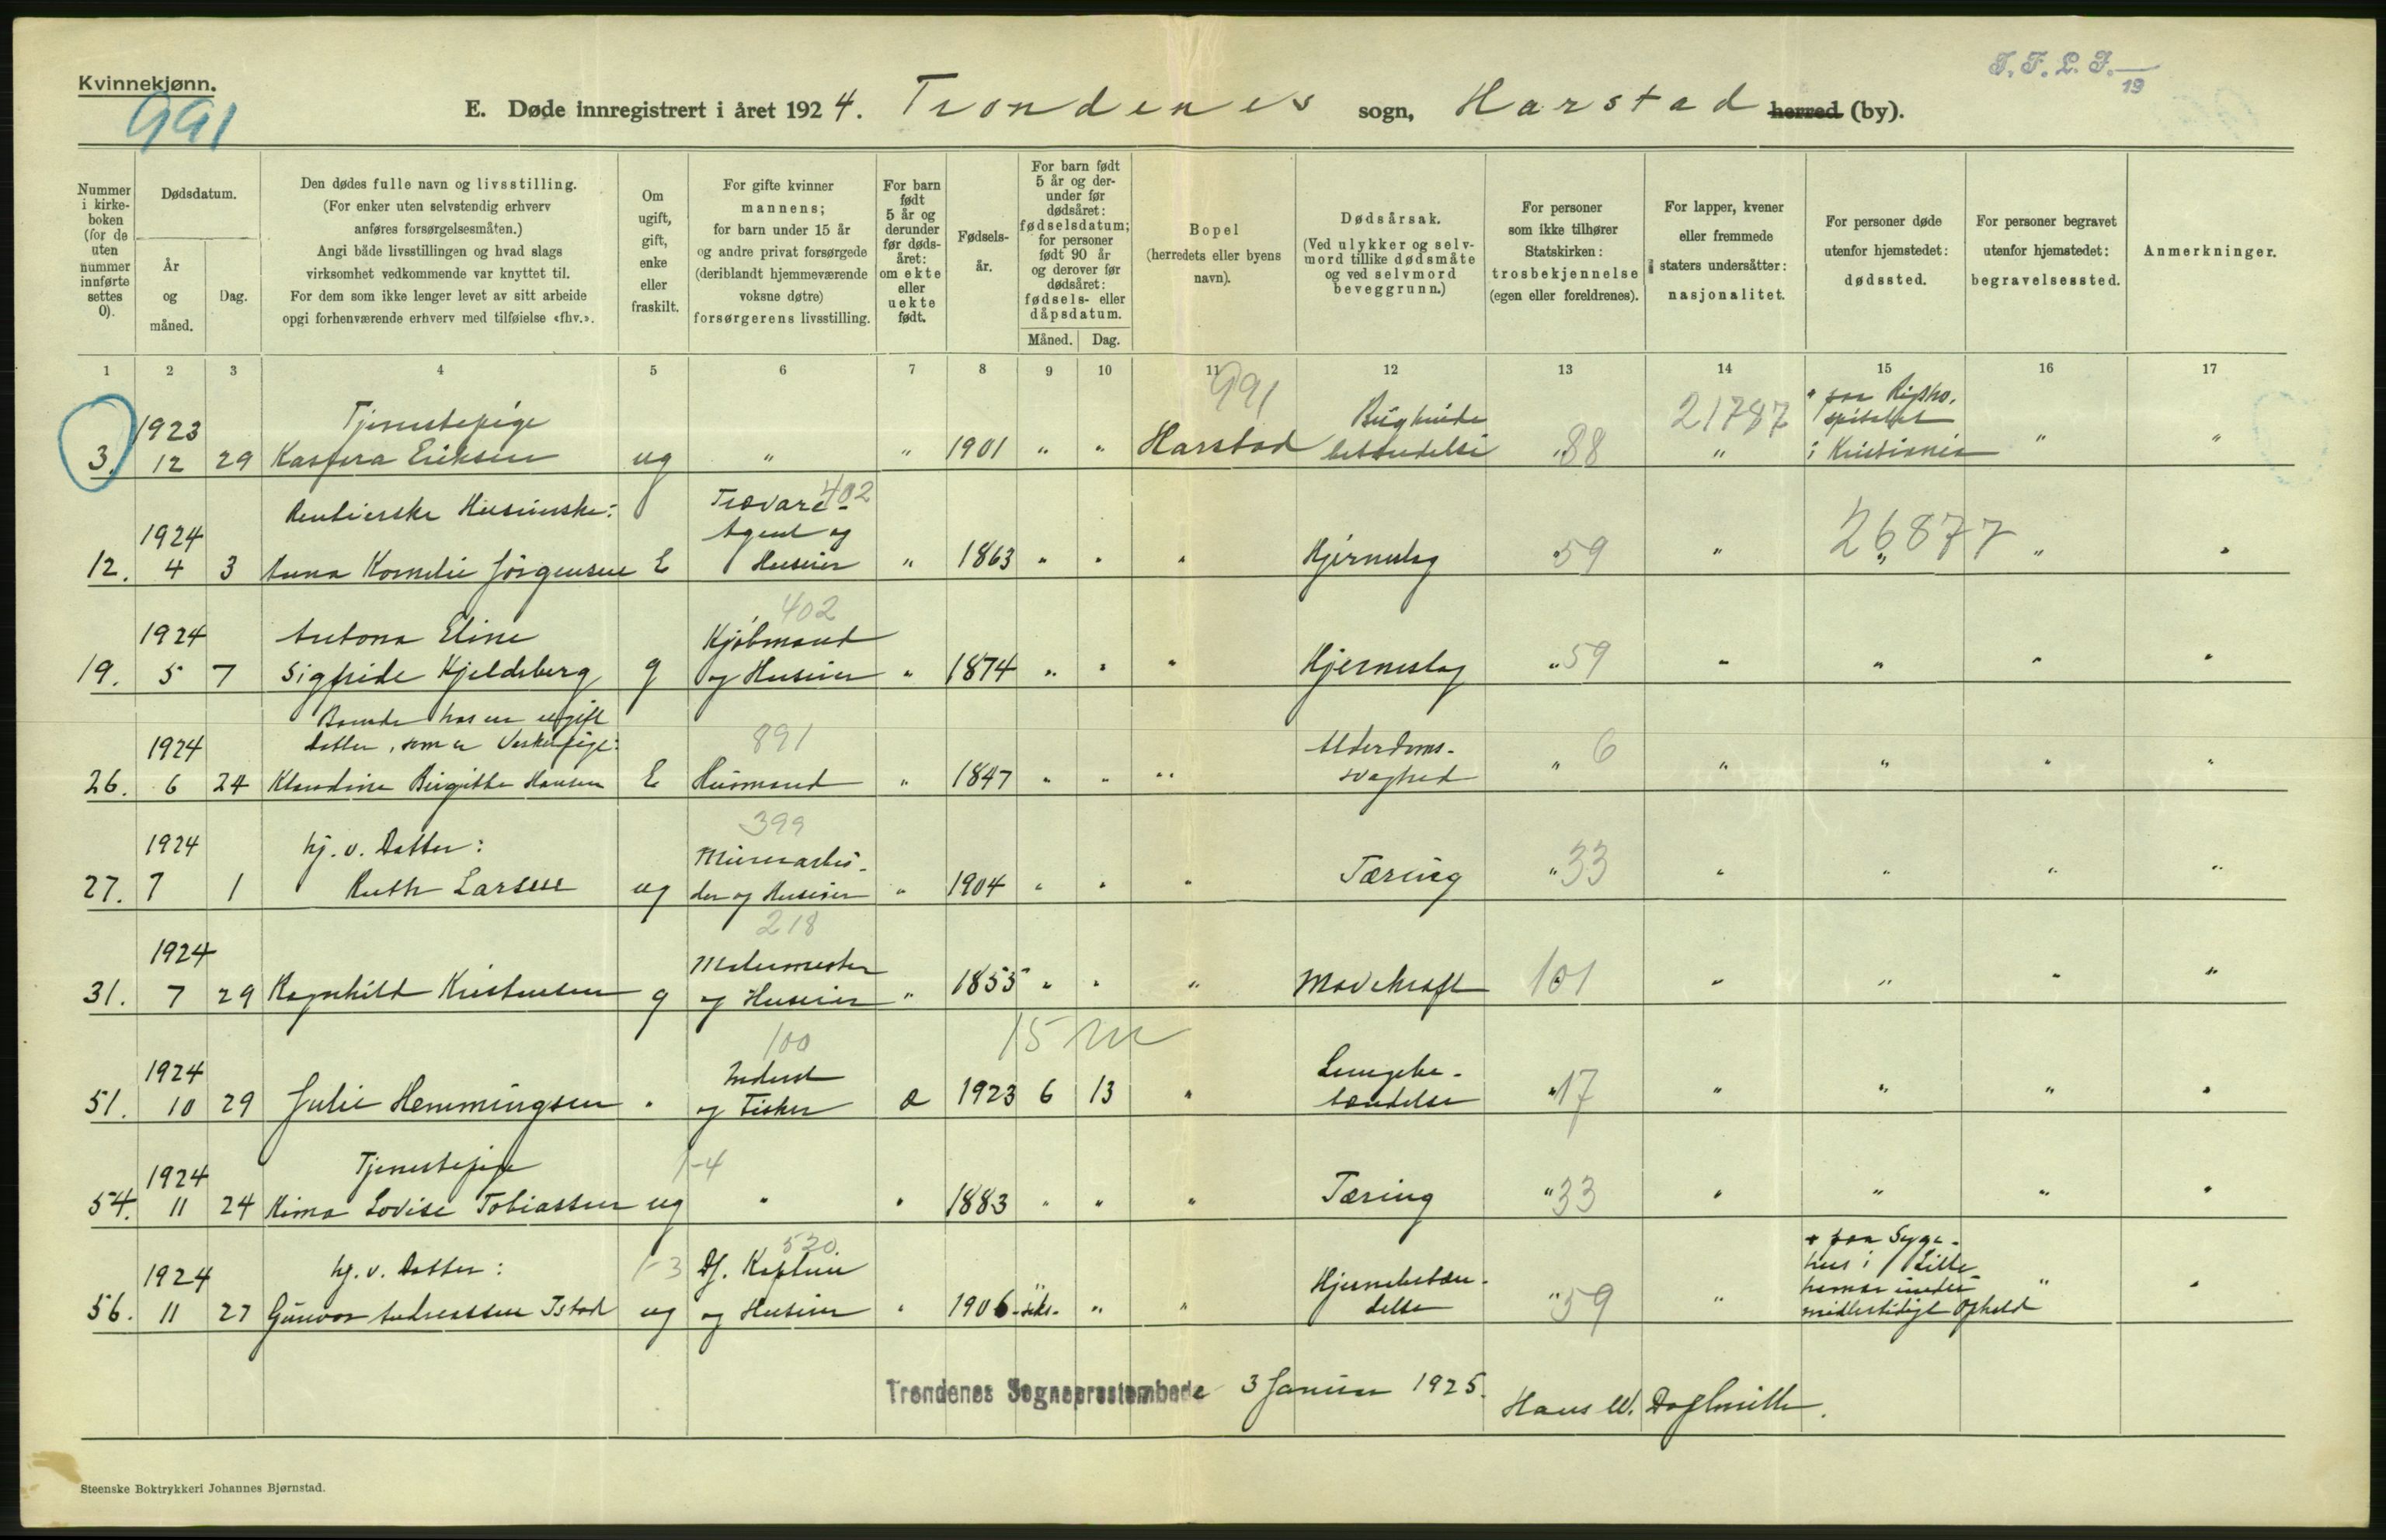 Kvinnekjønn.
991
T. F. L. J. 19
E. Døde innregistrert i året 1924. Trondenes sogn, Harstad herred (by).
Nummer i kirkeboken (for de uten nummer innførte settes 0).
Dødsdatum.
År og måned.
Dag.
Den dødes fulle navn og livsstilling.
(For enker uten selvstendig erhverv
anføres forsørgelsesmåten.)
Angi både livsstillingen og hvad slags
virksomhet vedkommende var knyttet til.
For dem som ikke lenger levet av sitt arbeide
opgi forhenværende erhverv med tilføielse «fhv.».
Om ugift, gift, enke eller fraskilt.
For gifte kvinner
mannens;
for barn under 15 år
og andre privat forsørgede
(deriblandt hjemmeværende
voksne døtre)
forsørgerens livsstilling.
For barn født 5 år og derunder før dødsåret: om ekte eller uekte født.
Fødselsår.
For barn født 5 år og derunder før dødsåret: fødselsdatum; for personer født 90 år og derover før dødsåret: fødsels- eller dåpsdatum.
Måned. Dag.
Bopel
(herredets eller byens
navn).
Dødsårsak.
(Ved ulykker og selvmord tillike dødsmåte og ved selvmord beveggrunn.)
For personer
som ikke tilhører
Statskirken:
trosbekjennelse
(egen eller foreldrenes).
For lapper, kvener
eller fremmede
staters undersåtter:
nasjonalitet.
For personer døde
utenfor hjemstedet:
dødssted.
For personer begravet
utenfor hjemstedet:
begravelsessted.
Anmerkninger.
1 2 3 4 5 6 7 8 9 10 11 12 13 14 15 16 17
991
3. 1923 12 29 Tjenestepige Kaspara Eriksen ug " " 1901 " " Harstad Bughinde betændelse " 88 21787 " paa Rigsho- spitalet i Kristiania " "
12. 1924 4 3 Rentierske Huseierske: Anna Kornelie Jörgensen E Trævare- 402 Agent og Huseier " 1863 " " " Hjerneslag " 59 " 26877 " " "
19. 1924 5 7 Antona Eline Sigfride Kjeldsberg g 402 Kjöbmand og Huseier " 1874 " " " Hjerneslag " 59 " " " "
26. 1924 6 24 Boende hos en ugift Datter, som er Vaskepige: Klaudine Birgitte Hansen E 891 Husmand " 1847 " " " Alderdoms- svaghed " 6 " " " "
27. 1924 7 1 hj. v. Datter: Ruth Larsen ug 399 Minearbei- der og Huseier " 1904 " " " Tæring " 33 " " " "
31. 1924 7 29 Ragnhild Kristensen g 218 Malermester og Huseier " 1855 " " " Mavekræft 101 " " " "
15 m
51. 1924 10 29 Julie Hemmingsen " 100 Inderst og Fisker e 1923 6 13 " Lungebe- tændelse " 17 " " " "
54. 1924 11 24 Tjenestepige Lovise Tobiassen ug 1-4 " " 1883 " " " Tæring " 33 " " " "
56. 1924 11 27 hj. v. Datter: Gunvor Andreassen Istad ug 1-3 520 Df. Kaptein og Huseier " 1906 " " Hjernebetæn- delse " 59 " paa Syge- hus i Lille hamar under midlertidigt Ophold " "
Trondenes Sogneprestembede 3 Januar 1925. Hans W.
Steenske Boktrykkeri Johannes Bjørnstad.